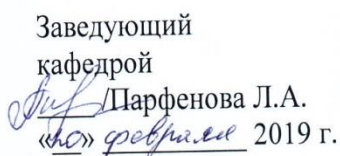 Заведующий
кафедрой
/Парфенова Л.А.
«20» февраля 2019 г.